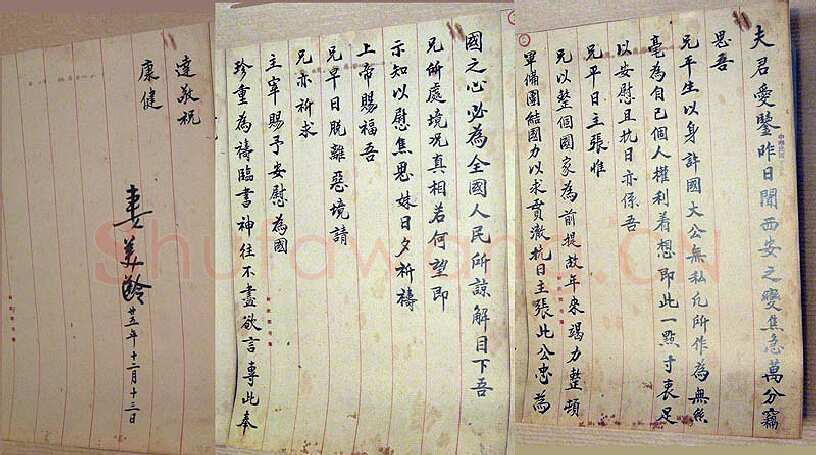 夫君愛鑒昨日聞西安之變焦急萬分竊
思吾
兄平生以身許國大公無私凡所作為無絲
毫為自己個人權利着想即此一點寸衷足
以安慰且抗日亦係吾
兄平日主張惟
兄以整個國家為前提故年來竭力整頓
軍備團結國力以求貫澈抗日主張此公忠為
國之心必為全國人民所諒解目下吾
兄所處境況真相若何望即
示知以慰焦思妹日夕祈禱
上帝賜福吾
兄早日脫離惡境請
兄亦祈求
主宰賜予安慰為國
珍重為禱臨書神往不盡欲言專此奉
達敬祝
康健
妻美齡 廿五年十二月十三日
Shufawang.CN